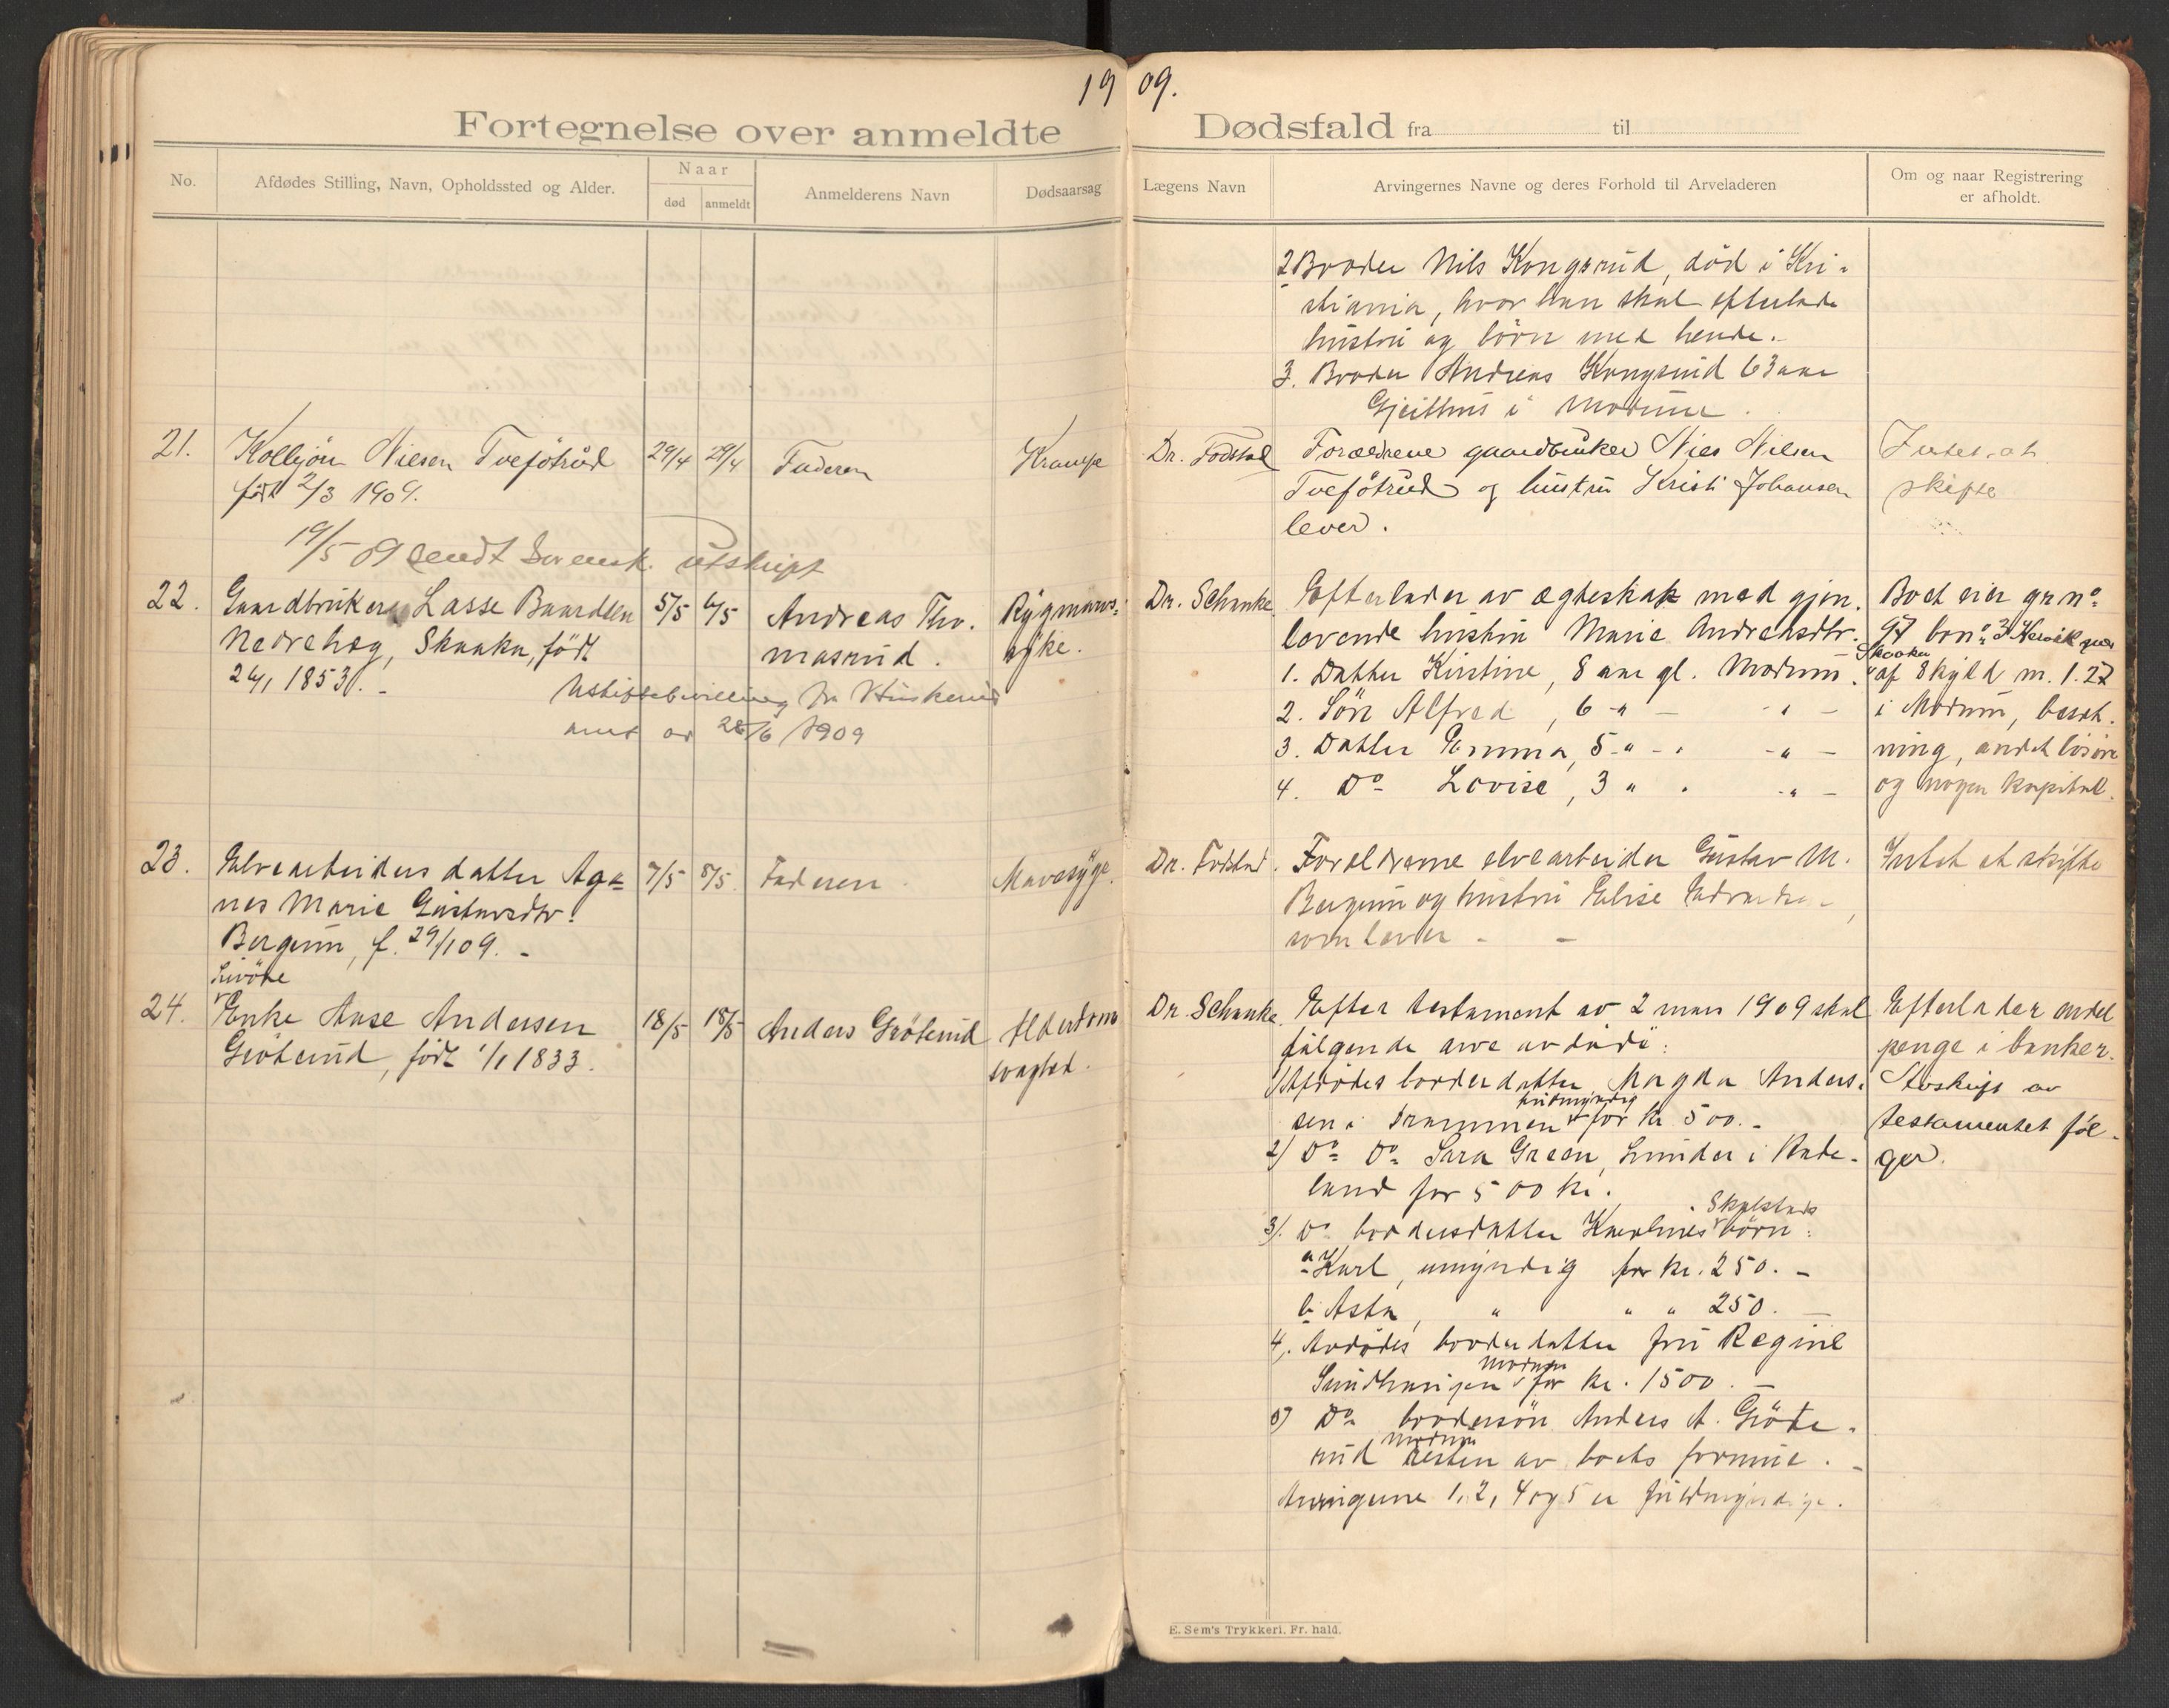 19 09.
Fortegnelse over anmeldte Dødsfald fra til
No.
Afdødes Stilling, Navn, Opholdssted og Alder.
Naar
død
anmeldt
Anmelderens Navn
Dødsaarsag
Lægens Navn
Arvingernes Navne og deres Forhold til Arveladeren
Om og naar Registrering
er afholdt.
2 Broder Nils Kongsrud, död i Kri-
stiania, hvor han skal efterlade
hustru og börn med hende.
3. Broder Andreas Kongsrud 63 aar
Gjeithus i Modum.
21.
Kolbjörn Nilsen Tveføtrud
født 2/3 1909.
29/4
29/4
Faderen
Krampe
Dr. Fodstad
Forældrene gaardbruker Nils Nilsen
Tveføtrud og hustru Kristi Johansen
lever.
Intet at
skifte
19/5 09 sendt Sorensk. utskript
22.
Gaardbruker Lasse Baardsen
Nedrehag, Skaaka, født
1853.
5/5
6/5
Andreas Tho-
masrud.
Rygmarvs-
syke.
Dr. Schanke
Efterlader av egteskap med gjen-
levende hustru Marie Andreasdtr.
1. Datter Kirstine, 8 aar gl. Modum.
2. Sön Alfred, 6 -"-
3. Datter Emma, 5 -"-
4. Do Lovise, 3 "
Boet eier gr.no
97 bno 3
Skaaka
af Skyld m. 1.27
i Modum, besæt-
ning, andet lösöre
og nogen kapital.
Uskiftebevilling fra Buskerud
amt av 28/6 1909
23.
Elvearbeiders datter Ag-
nes Marie Gustavsdtr.
Bergum, f. 29/1 09.
7/5
8/5
Faderen
Mavesyge.
Dr. Fodstad.
Foreldrene elvearbeider Gustav M.
Bergum og hustru Elise
som lever
Intet at skifte
24.
Enke Anse Andersen
Gröterud, født 1/1 1833.
18/5
18/5
Anders Gröterud
Alderdoms
svaghed.
Dr. Schanke
Efter testament av 2 mars 1909 skal
følgende arve avdøde:
1) Afdödes broderdatter Magda Anders-
fuldmyndig
sen i Drammen for kr 500.-
2) Do Do Sara Green, Lunder i Aade-
land for 500 kr.
Skalstads
3). Do brodersdatter Karolines börn:
a Karl, umyndig for kr. 250.-
b Asta, " " " 250.-
4). Avdødes broderdatter fru Regine
Modum
Sundhaugen for kr. 1500.-
5) Do brodersön Anders A. Gröte-
Modum
rud resten av boets formue.-
Arvingerne 1, 2, 4 og 5 er fuldmyndige.
Efterlader endel
penge i banker.
Avskrift av
testamentet föl-
ger.
E. Sem's Trykkeri. Fr. hald.